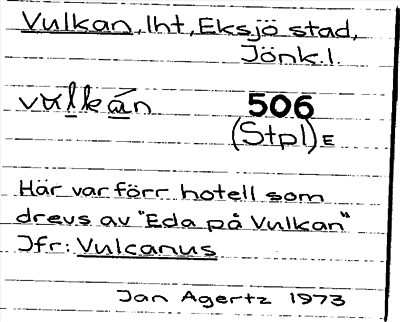 Vulkan, lht, Eksjö stad,
Jönk.l.
vulkán 506
(Stpl)E
Här var förr hotell som
drevs av "Eda på Vulkan"
Jfr: Vulcanus
Jan Agertz 1973